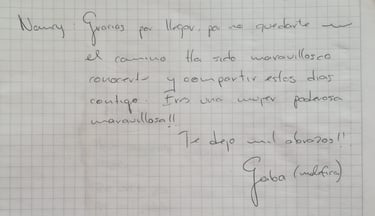 Nancy: Gracias por llegar, por no quedarte en
el camino. Ha sido maravilloso
conocerte y compartir estos días
contigo. Eres una mujer poderosa
maravillosa!!
Te dejo mil abrazos!!
Gaba